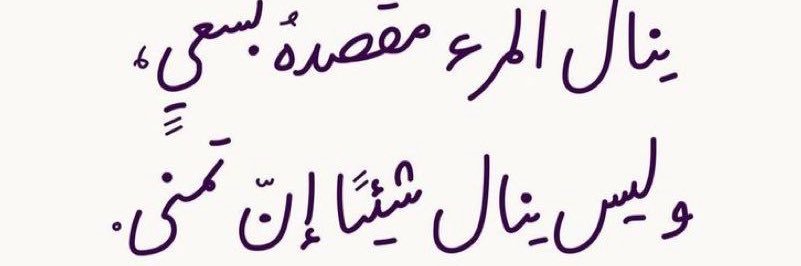 ينال المرء مقصدهُ بسعيٍ،
وليس ينال شيئًا إنّ تمنى.